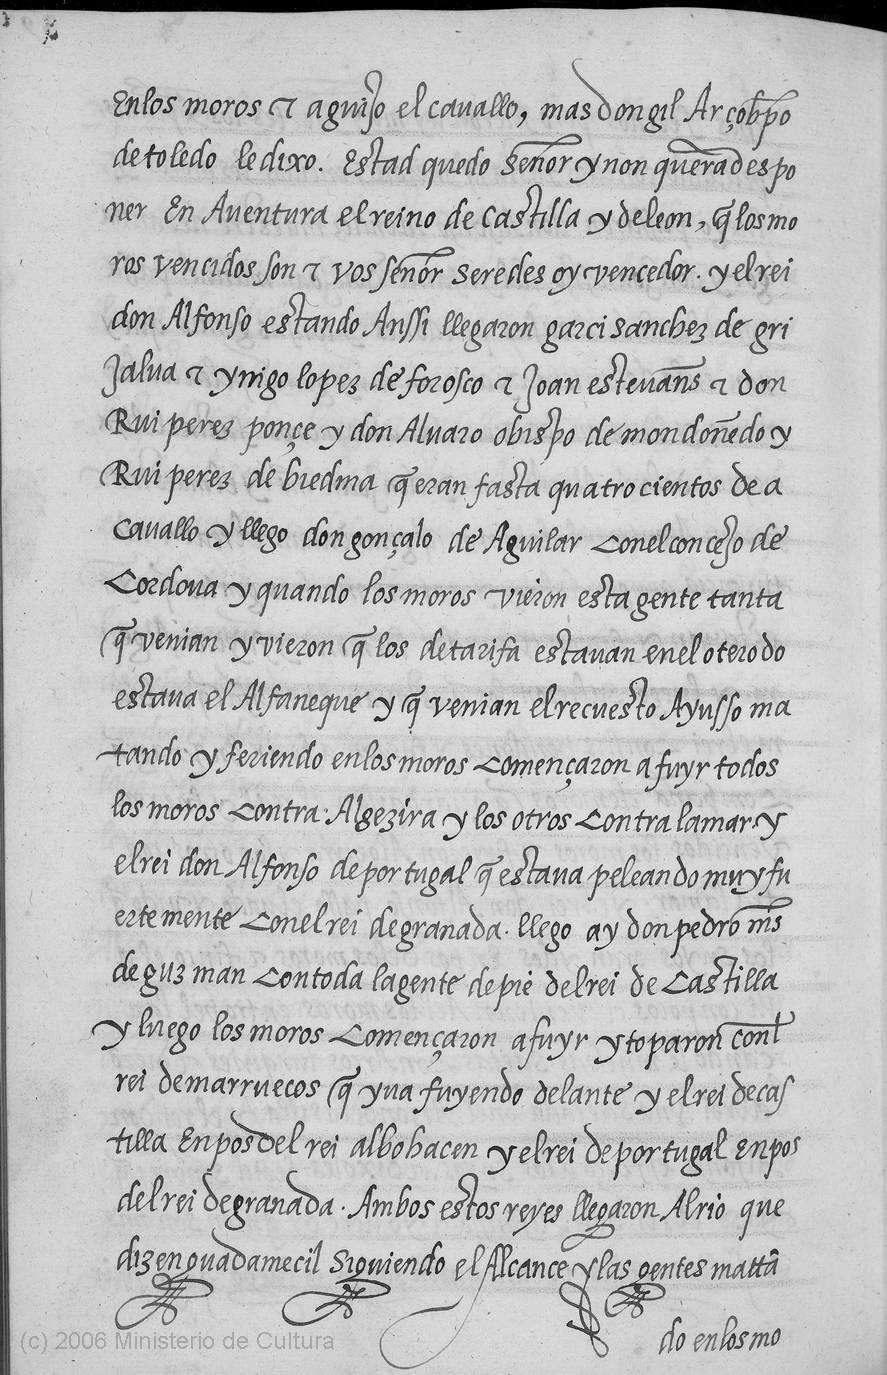 Enlos moros ⁊ aguiso el cauallo, mas don gil Arçobpo
de toledo le dixo. Estad quedo señor y non querades po
ner En Auentura el reino de castilla y de leon, q̃ los mo
ros vencidos son ⁊ vos señor seredes oy vencedor. y el rei
don Alfonso estando Anssi llegaron garci sanchez de gri
Jalua ⁊ ynigo lopez de forosco ⁊ Joan esteuañs ⁊ don
Rui perez ponçe y don Aluaro obispo de mondoñedo y
Rui perez de biedma q̃ eran fasta quatrocientos de a
cauallo y llego don gonçalo de Aguilar conel concejo de
Cordoua y quando los moros vieron esta gente tanta
q̃ venian y vieron q̃ los de tarifa estauan enel otero do
estaua el Alfaneque y q̃ venian el recuesto Ayusso ma
tando y feriendo enlos moros començaron a fuyr todos
los moros contra Algezira y los otros contra la mar. y
el rei don Alfonso de portugal q̃ estaua peleando muy fu
ertemente conel rei de granada. llego ay don pedro mñs
de guzman con toda la gente de pie del rei de Castilla
y luego los moros començaron a fuyr y toparon conl
rei de marruecos q̃ yua fuyendo delante y el rei de cas
tilla En pos del rei albohacen y el rei de portugal En pos
del rei de granada. Ambos estos reyes llegaron Al rio que
dizen guadamecil siguiendo el Alcance y las gentes mattã
do enlos mo
(c) 2006 Ministerio de Cultura